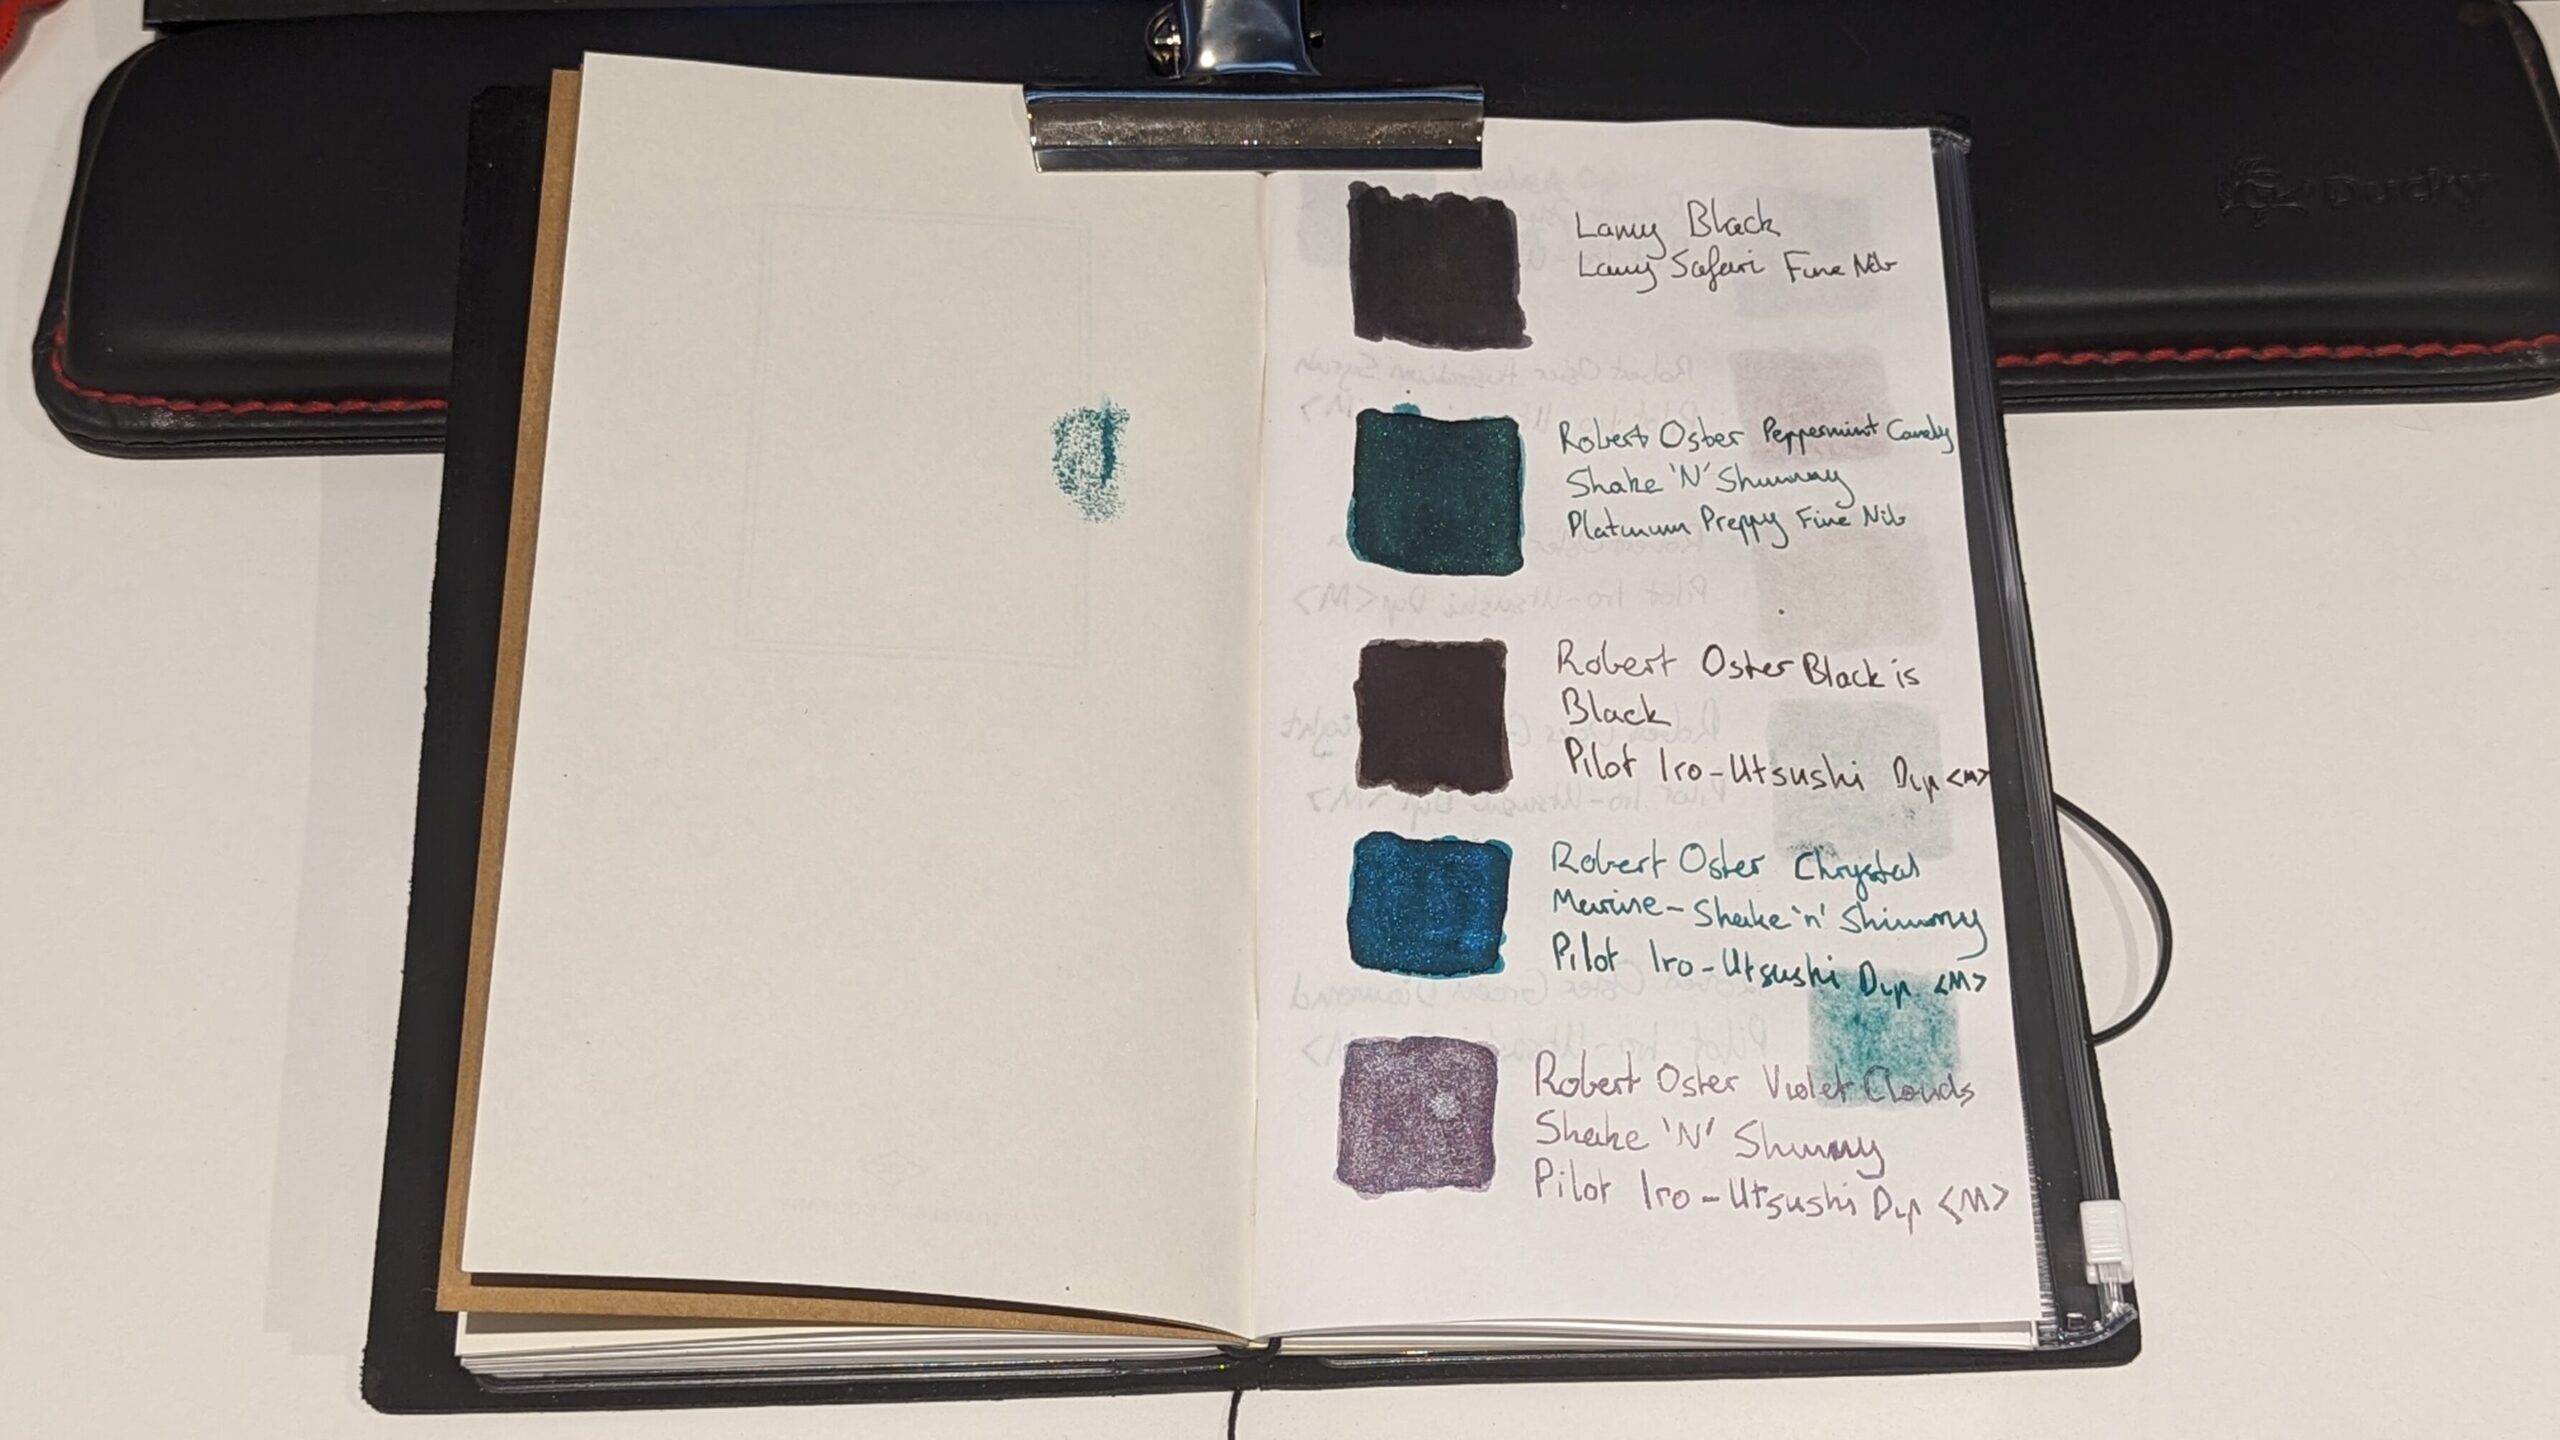 Ducky
Lamy Black
Lamy Safari Fine Nib
Robert Oster Peppermint Candy
Shake 'N' Shimmy
Platinum Preppy Fine Nib
Robert Oster Black is
Black
Pilot Iro-Utsushi Dip <M>
Robert Oster Chrystal
Marine- Shake 'n' Shimmy
Pilot Iro-Utsushi Dip <M>
Robert Oster Violet Clouds
Shake 'N' Shimmy
Pilot Iro-Utsushi Dip <M>